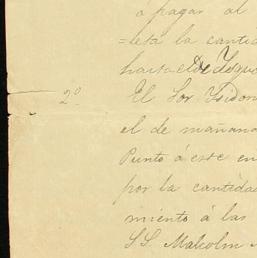 a pagar al
=leta la cantid
hasta el de Yzqu
2º El Sor Ysidor
el de mañana
Punto á este en
por la cantidad
miento á las
S.S. Malcolm